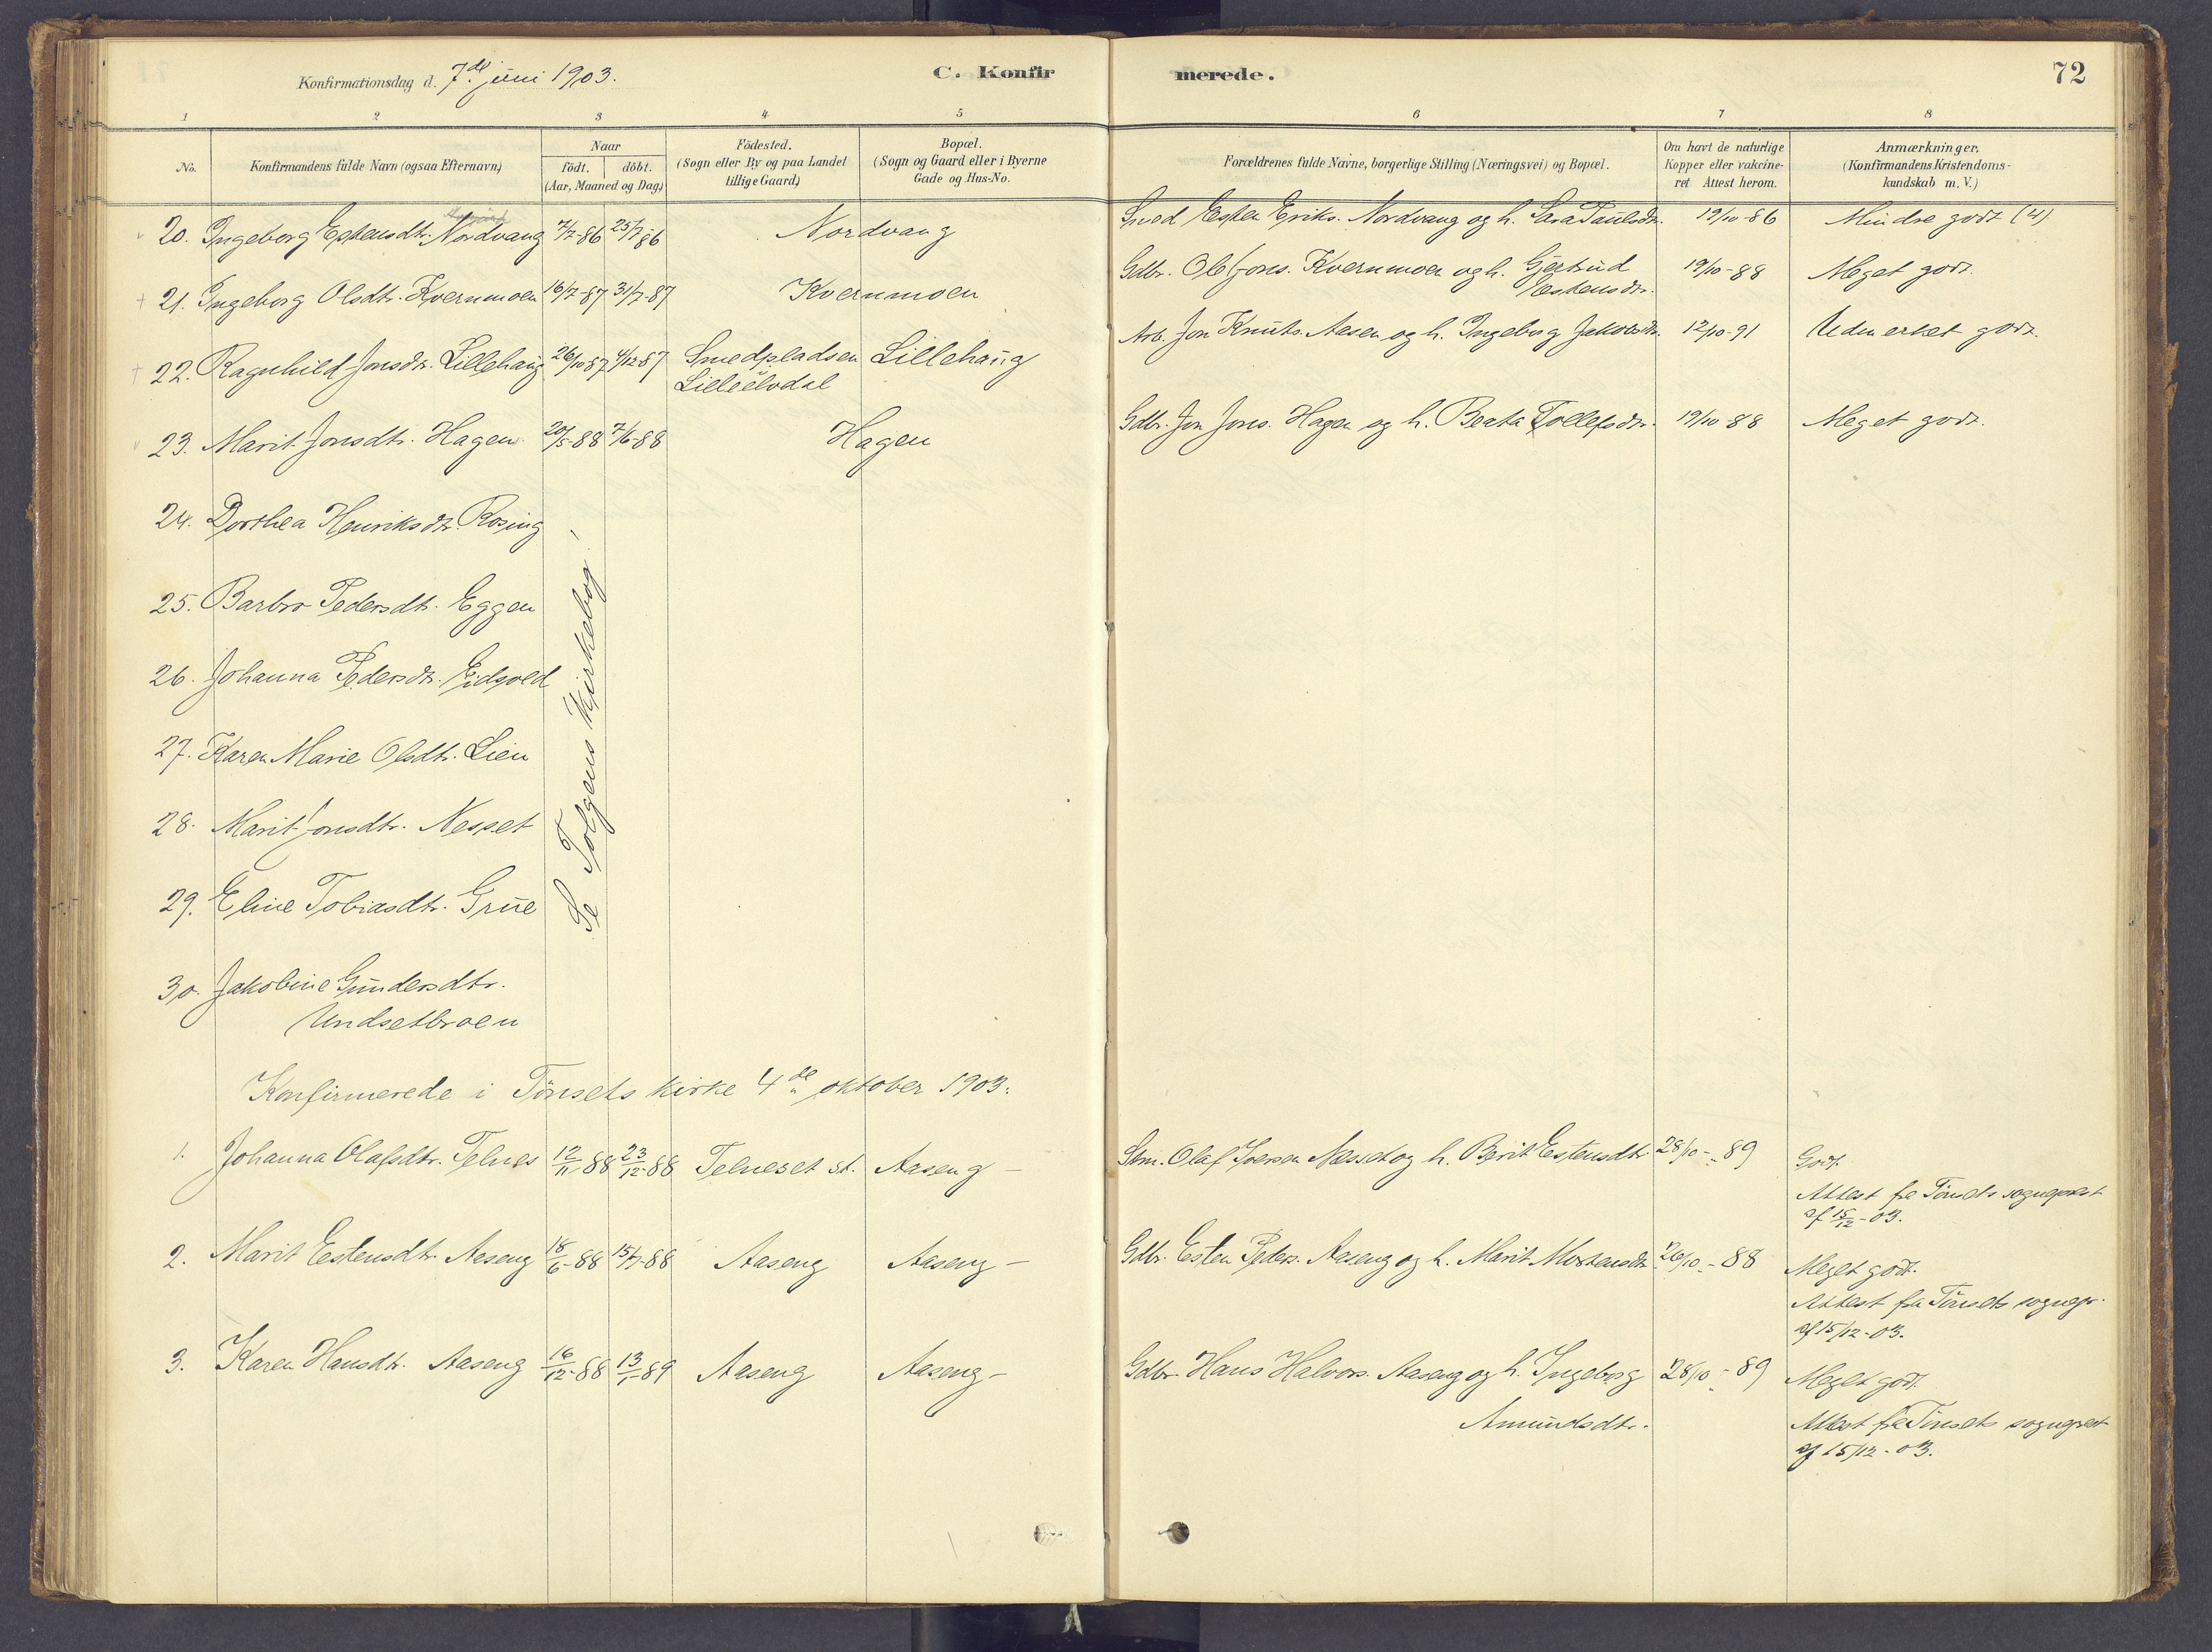 Konfirmationsdag d. 7de juni 1903.
C. Konfirmerede.
72
1 2 3 4 5 6 7 8
No.
Konfirmandens fulde Navn (ogsaa Efternavn)
Naar
födt. döbt.
(Aar, Maaned og Dag)
Födested.
(Sogn eller By og paa Landet
tillige Gaard)
Bopæl.
(Sogn og Gaard eller i Byerne
Gade og Hus-No.
Forældrenes fulde Navne, borgerlige Stilling (Næringsvei) og Bopæl.
Om havt de naturlige
Kopper eller vakcine-
ret Attest herom.
Anmærkninger,
(Konfirmandens Kristendoms-
kundskab m. V.)
20. Ingeborg Estensdtr. Nordvang 7/7-86 25/7 86 Nordvang Smed Esten Eriks. Nordvang og h. Sara Paulsdr. 19/10-86 Mindre godt (4)
21. Ingeborg Olsdtr. Kvernmoen 16/7-87 31/7-87 Kvernmoen Gdbr. Ole Jons. Kvernmoen og h. Gjertrud 19/10-88 Meget godt.
Estensdr.
22. Ragnhild Jonsdr. Lillehaug 26/10 87 4/12 87 Smedpladsen Lillehaug Arb. Jon Knuts. Aasen og h. Ingeborg Jakobsdr. 12/10-91 Udmerket godt.
Lilleelvdal
23. Marit Jonsdtr. Hagen 20/5-88 7/6-88 Hagen Gdbr. Jon Jons. Hagen og h. Beata Tollefsdr. 19/10-88 Meget godt.
24. Dorthea Henriksdtr. Rosing
25. Barbro Pedersdtr. Eggen
26. Johanna Pedersdtr. Eidsvold
27. Karen Marie Olsdtr. Lien
28. Marit Jonsdtr. Nesset
29. Eline Tobiasdtr. Grue
Se Tolgens Kirkebog!
30. Jakobine Gundersdtr.
Undsetbroen
Konfirmerede i Tönsets kirke 4de oktober 1903.
1. Johanna Olafsdtr. Telnes 12/11 88 23/12-88 Telneset st. Aaseng - Stm. Olaf Iversen Nesset og h. Berit Estensdtr. 28/10-89 Godt.
Attest fra Tönsets sogneprest
af 15/12-03.
2. Marit Estensdtr. Aaseng 18/6-88 15/7-88 Aaseng Aaseng - Gdbr. Esten Peders. Aaseng og h. Marit Mortensdtr. 26/10-88 Meget godt.
Attest fra Tönsets sognepr.
af 15/12-03.
3. Karen Hansdtr. Aaseng 16/12-88 13/1-89 Aaseng Aaseng - Gdbr. Hans Halvors. Aaseng og h. Ingeborg 28/10-89 Meget godt.
Amundsdtr.
Attest fra Tönsets sogneprest
af 15/12-03.